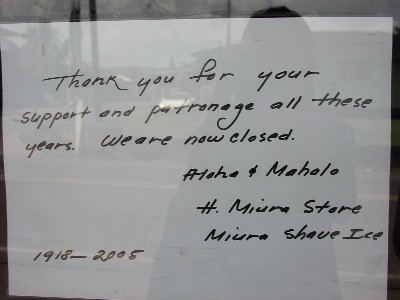 Thank you for your
support and patronage all these
years. We are now closed.
Aloha & Mahalo
H. Miura Store
Miura Shave Ice
1918-2005